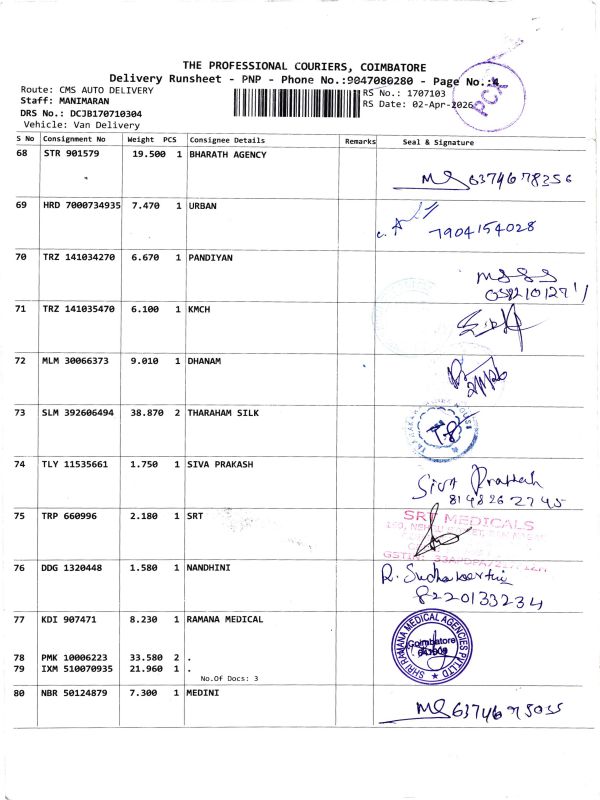 THE PROFESSIONAL COURIERS, COIMBATORE
Delivery Runsheet - PNP - Phone No.:9047080280 - Page No.:4
PCX
Route: CMS AUTO DELIVERY
RS No.: 1707103
Staff: MANIMARAN
RS Date: 02-Apr-2026
DRS No.: DCJB170710304
Vehicle: Van Delivery
S No Consignment No Weight PCS Consignee Details Remarks Seal & Signature
68 STR 901579 19.500 1 BHARATH AGENCY
6374678356
69 HRD 7000734935 7.470 1 URBAN
7904154028
70 TRZ 141034270 6.670 1 PANDIYAN
71 TRZ 141035470 6.100 1 KMCH
72 MLM 30066373 9.010 1 DHANAM
73 SLM 392606494 38.870 2 THARAHAM SILK
74 TLY 11535661 1.750 1 SIVA PRAKASH
Siva Prakash
8148262745
75 TRP 660996 2.180 1 SRT
SRT MEDICALS
76 DDG 1320448 1.580 1 NANDHINI
8220133234
77 KDI 907471 8.230 1 RAMANA MEDICAL
SHRI RAMANA MEDICAL AGENCIES PVT LTD
Coimbatore
78 PMK 10006223 33.580 2 .
79 IXM 510070935 21.960 1 .
No.Of Docs: 3
80 NBR 50124879 7.300 1 MEDINI